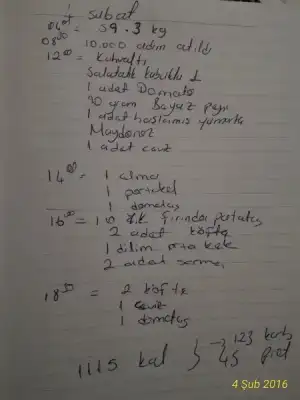 4 Şubat
04⁰⁰ = 59.3 kg
08³⁰ 10.000 adım atıldı
12⁰⁰ = Kahvaltı
Salatalık kabuklu 1
1 adet Domates
30 gram Beyaz peynir
1 adet haşlanmış yumurta
Maydonoz
1 adet ceviz
14⁰⁰ = 1 elma
1 portakal
1 domates
16⁰⁰ = 1 Fırında patates
2 adet köfte
1 dilim kek
2 adet sarma
18³⁰ = 2 köfte
1 ceviz
1 domates
1115 kal } → 123 karb
45 prot
4 Şub 2016